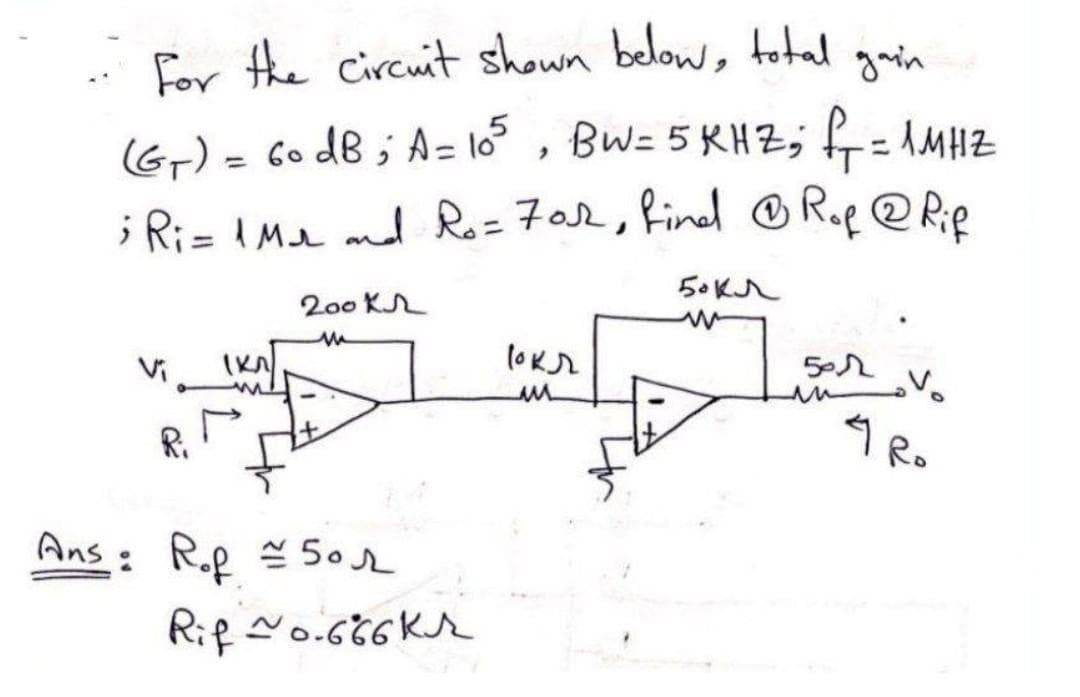 For the circuit shown below, total gain
(G_T) = 60 dB ; A = 10^5 , BW = 5 KHZ; f_T = 1MHZ
; Ri = 1 MΩ and Ro = 70Ω, find ① Rof ② Rif
50KΩ
200 KΩ
Vi 1KΩ 10KΩ 50Ω Vo
- -
+ +
Ri Ro
Ans : Rof ≅ 50Ω
Rif ≃ 0.666 KΩ